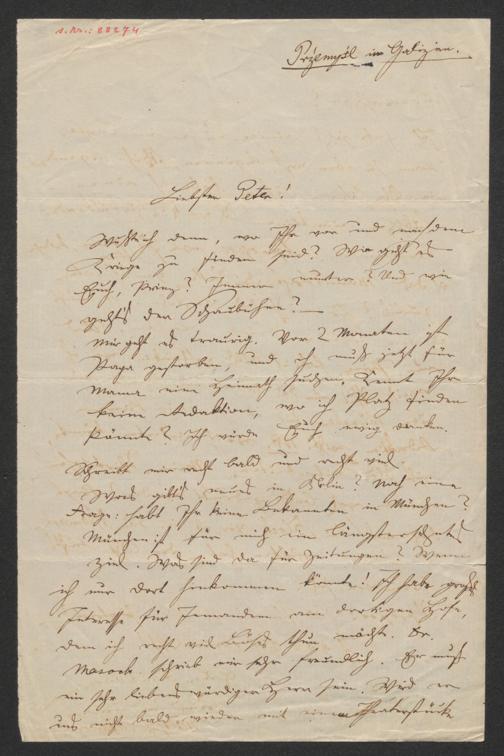 Przemyśl in Galizien.
Liebster Peter!
Wüßt ich denn, wo Ihr vor und nach dem
Kriege zu finden seid? Wie geht es
Euch, Prinz? Immer munter? Und wie
geht's der Schaubühne? —
Mir geht es traurig. Vor 2 Monaten ist
Papa gestorben, und ich muß jetzt für
Mama eine Heimath suchen. Kennt Ihr
keine Redaktion, wo ich Platz finden
könnte? Ich würde Euch ewig danken.
Schreibt mir recht bald und recht viel
Was gibt's neues in Köln? Noch eine
Frage: habt Ihr keine Bekannten in München?
München ist für mich ein längstersehntes
Ziel. Was sind da für Zeitungen? Wenn
ich nur dort hinkommen könnte! Ich habe großes
Interesse für Jemanden am dortigen Hofe,
dem ich recht viel thun möcht. Dr.
schrieb mir sehr freundlich. Er muß
ein sehr liebenswürdiger Herr sein. Wird er
uns nicht bald wieder mit einem Theaterstücke